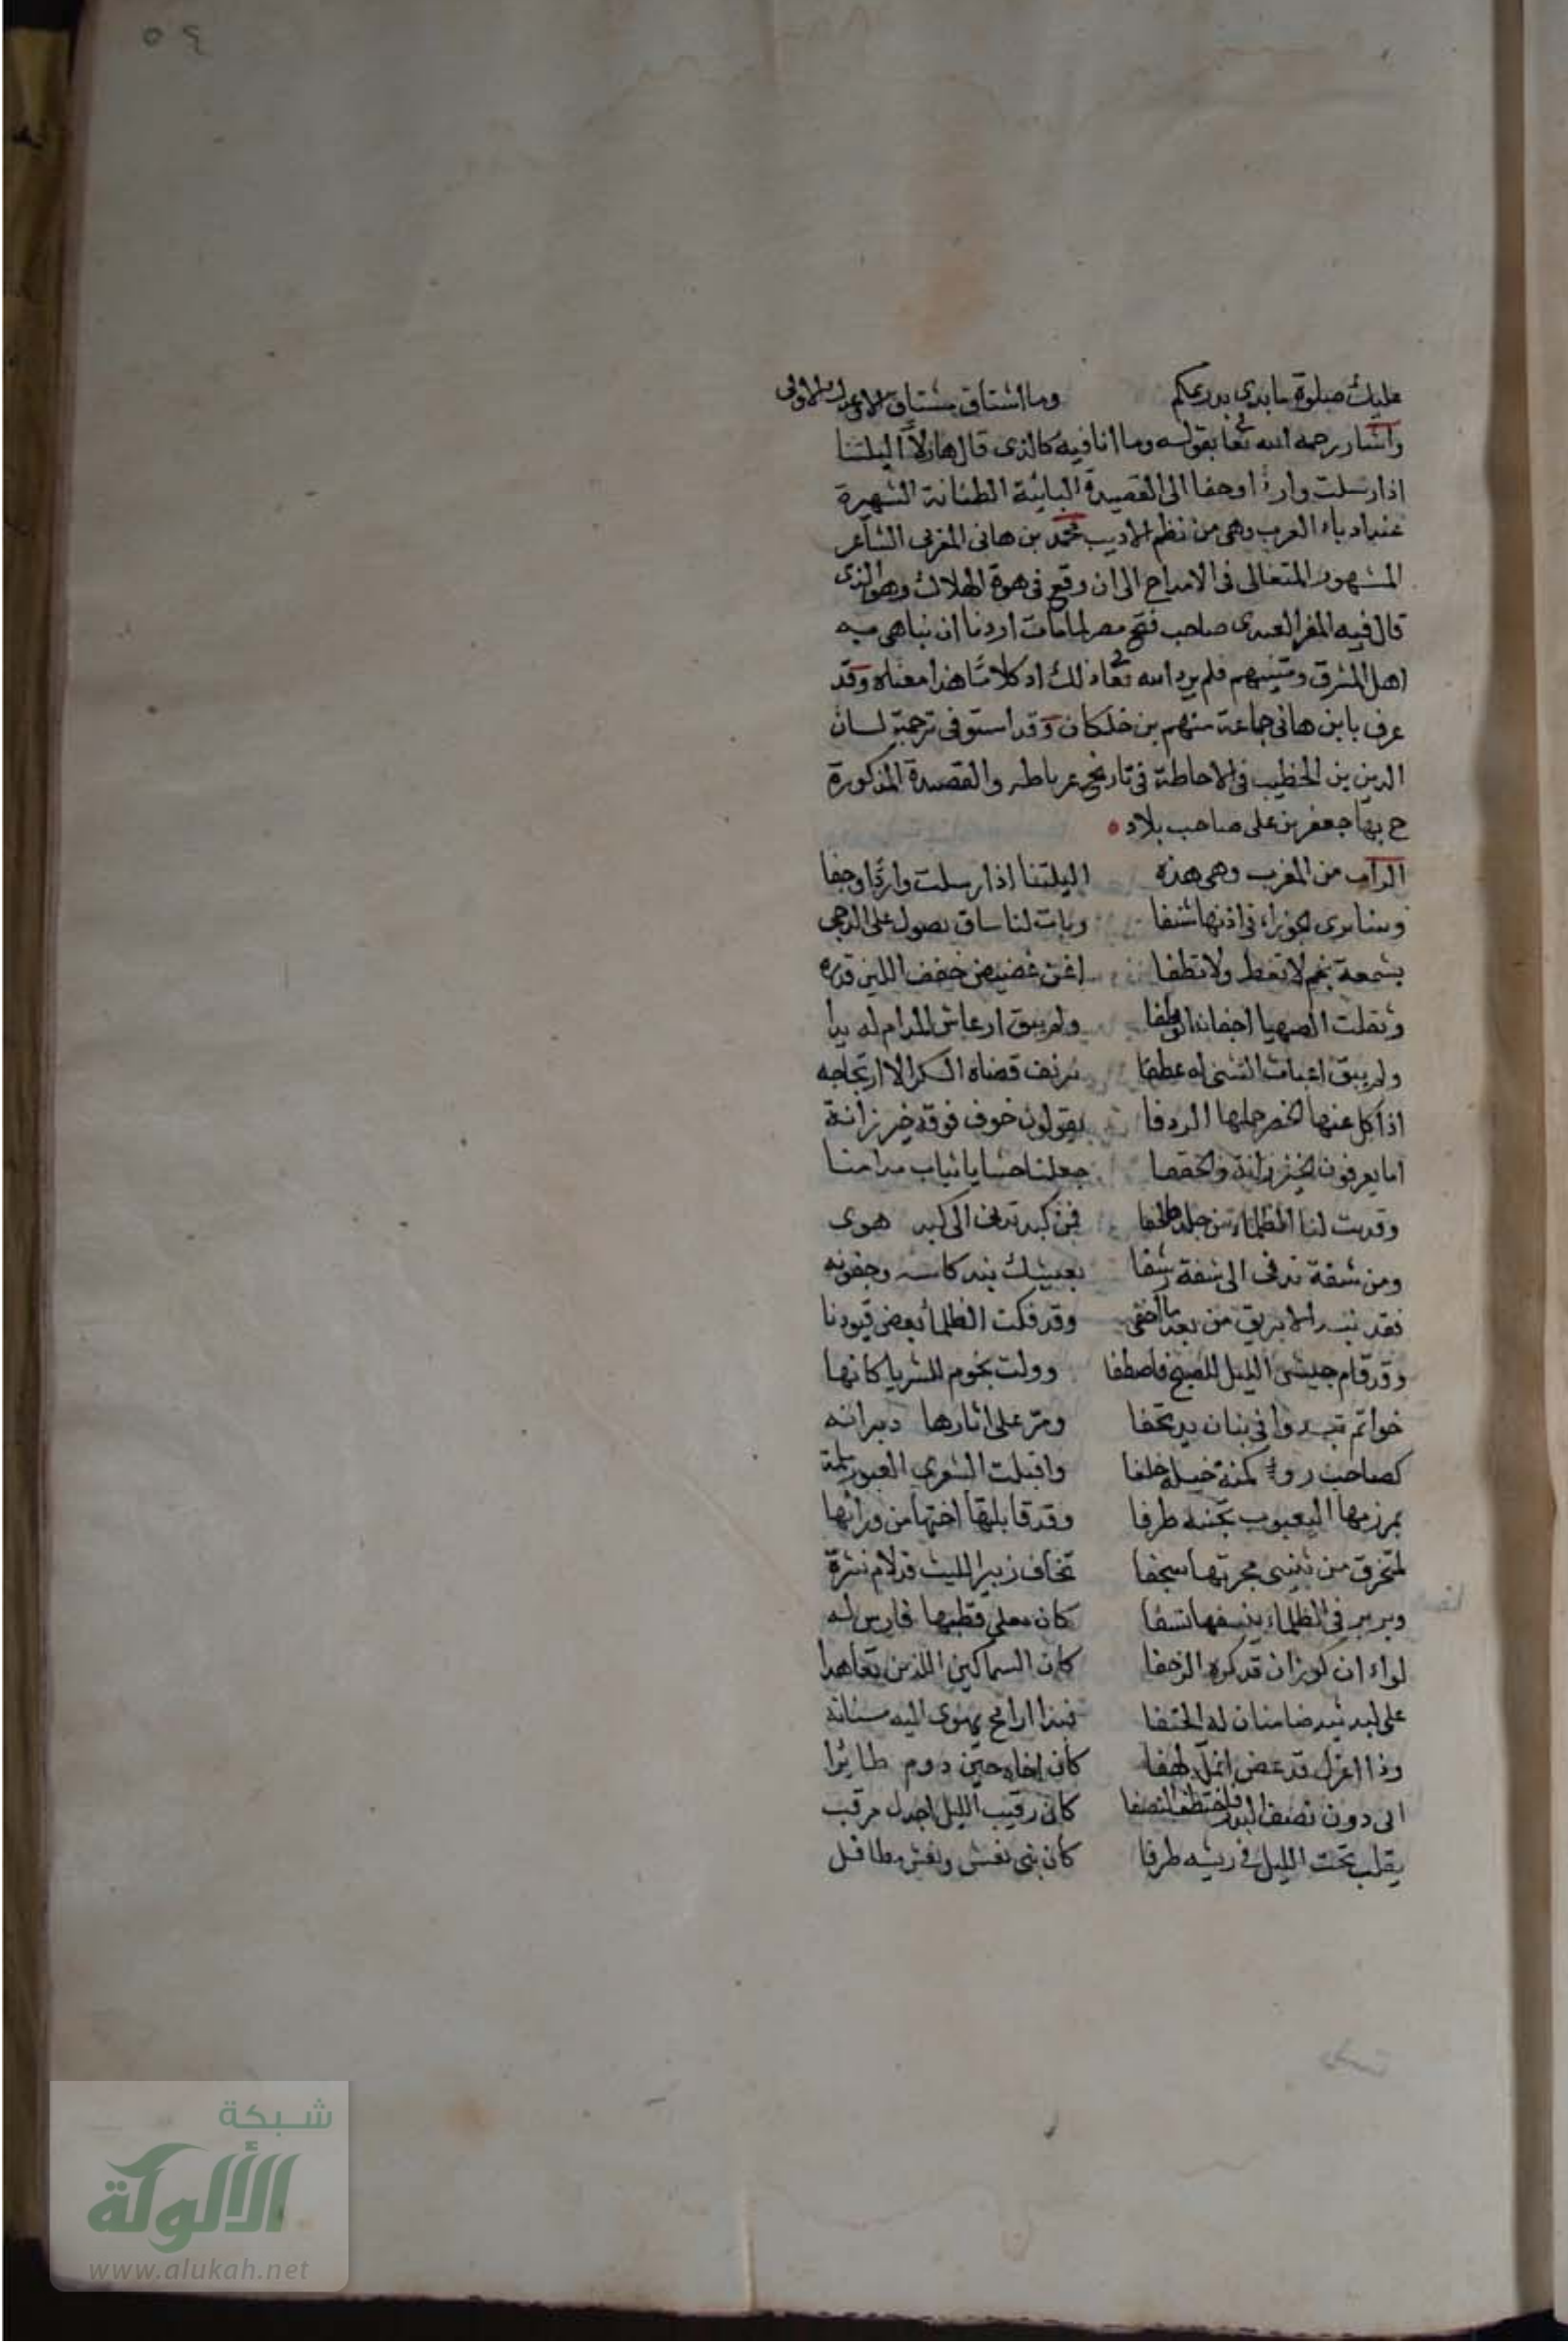 ٥٤
عليك صلوة ما بدى بدر بمكم وما اشتاق مشتاق
واشار رحمه الله تعا بقوله وما انا فيه كالذى قال هازلا اليلتنا
اذ ارسلت واردا وحفا الى القصيدة البائية الطنانة الشهيرة
عند ادباء العرب وهى من نظم الاديب محمد بن هانى المغربى الشاعر
المشهور المتغالى فى الامداح الى ان وقع فى هوة الهلاك وهو الذى
قال فيه المغر العبدى صاحب فتح مصر لما مات اردنا ان نباهى به
اهل المشرق ومتنبيهم فلم يرد الله تعا ذلك او كلاما هذا معناه وقد
عرف بابن هانى جماعة منهم بن خلكان وقد استوفى ترجمته لسان
الدين بن الخطيب فى الاحاطة فى تاريخ غرناطه والقصيدة المذكورة
ح بها جعفر بن على صاحب بلاد
الزاب من المغرب وهى هذه اليلتنا اذ ارسلت واردا وحفا
وبتنا نرى الجوزاء فى اذنها شنفا وبات لنا ساق يصول على الدجى
بشمعة نجم لا تقط ولا تطفا اغن غضيض خفف اللين قده
وثقلت الصهبا اجفانه الوطفا ولم يبق ارعاش المدام له يدا
ولم يبق اعنات التثنى له عطفا نزيف قضاه السكر الا ارتجاجه
اذا كل عنها الخصر حملها الردفا يقولون خوف فوقه خيزرانة
اما يعرفون الخيزرانة والحقفا جعلنا حشايا ثياب مدامنا
وقدت لنا الظلماء من جلدها لحفا فمن كبد تدنى الى كبد هوى
ومن شفة تدنى الى شفة رشفا بعيشك نبه كاسه وجفونه
فقد نبه الابريق من بعد ما اغفى وقد فكت الظلما بعض قيودنا
وقد قام جيش الليل للصبح فاصطفا وولت نجوم للثريا كانها
خواتم تبدوا فى بنان يد تخفا ومر على اثارها دبرانه
كصاحب ردء كمنة خيله خلفا واقبلت الشعرى العبور ملمة
بمرزمها اليعبوب تجنبه طرفا وقد قابلتها اختها من ورائها
لتخرق من ثنيى مجرتها سجفا تخاف زئير الليث قدام نثرة
وبربر فى الظلماء ينسفها نسفا كان معلى قطبها فارس له
لواء ان كوزان قد كره الزحفا كان السماكين اللذين تعاهدا
على لبديه ضامنان له الحتفا فذا رامح يهوى اليه سنانه
وذا اعزل قد عض انمله لهفا كان اخاه حين دوم طائرا
اتى دون نصف البدر فاختطف النصفا كان رقيب الليل اجدل مرقب
يقلب تحت الليل فى ريشه طرفا كان بنى نعش ونعش مطافل
شبكة
الألوكة
www.alukah.net